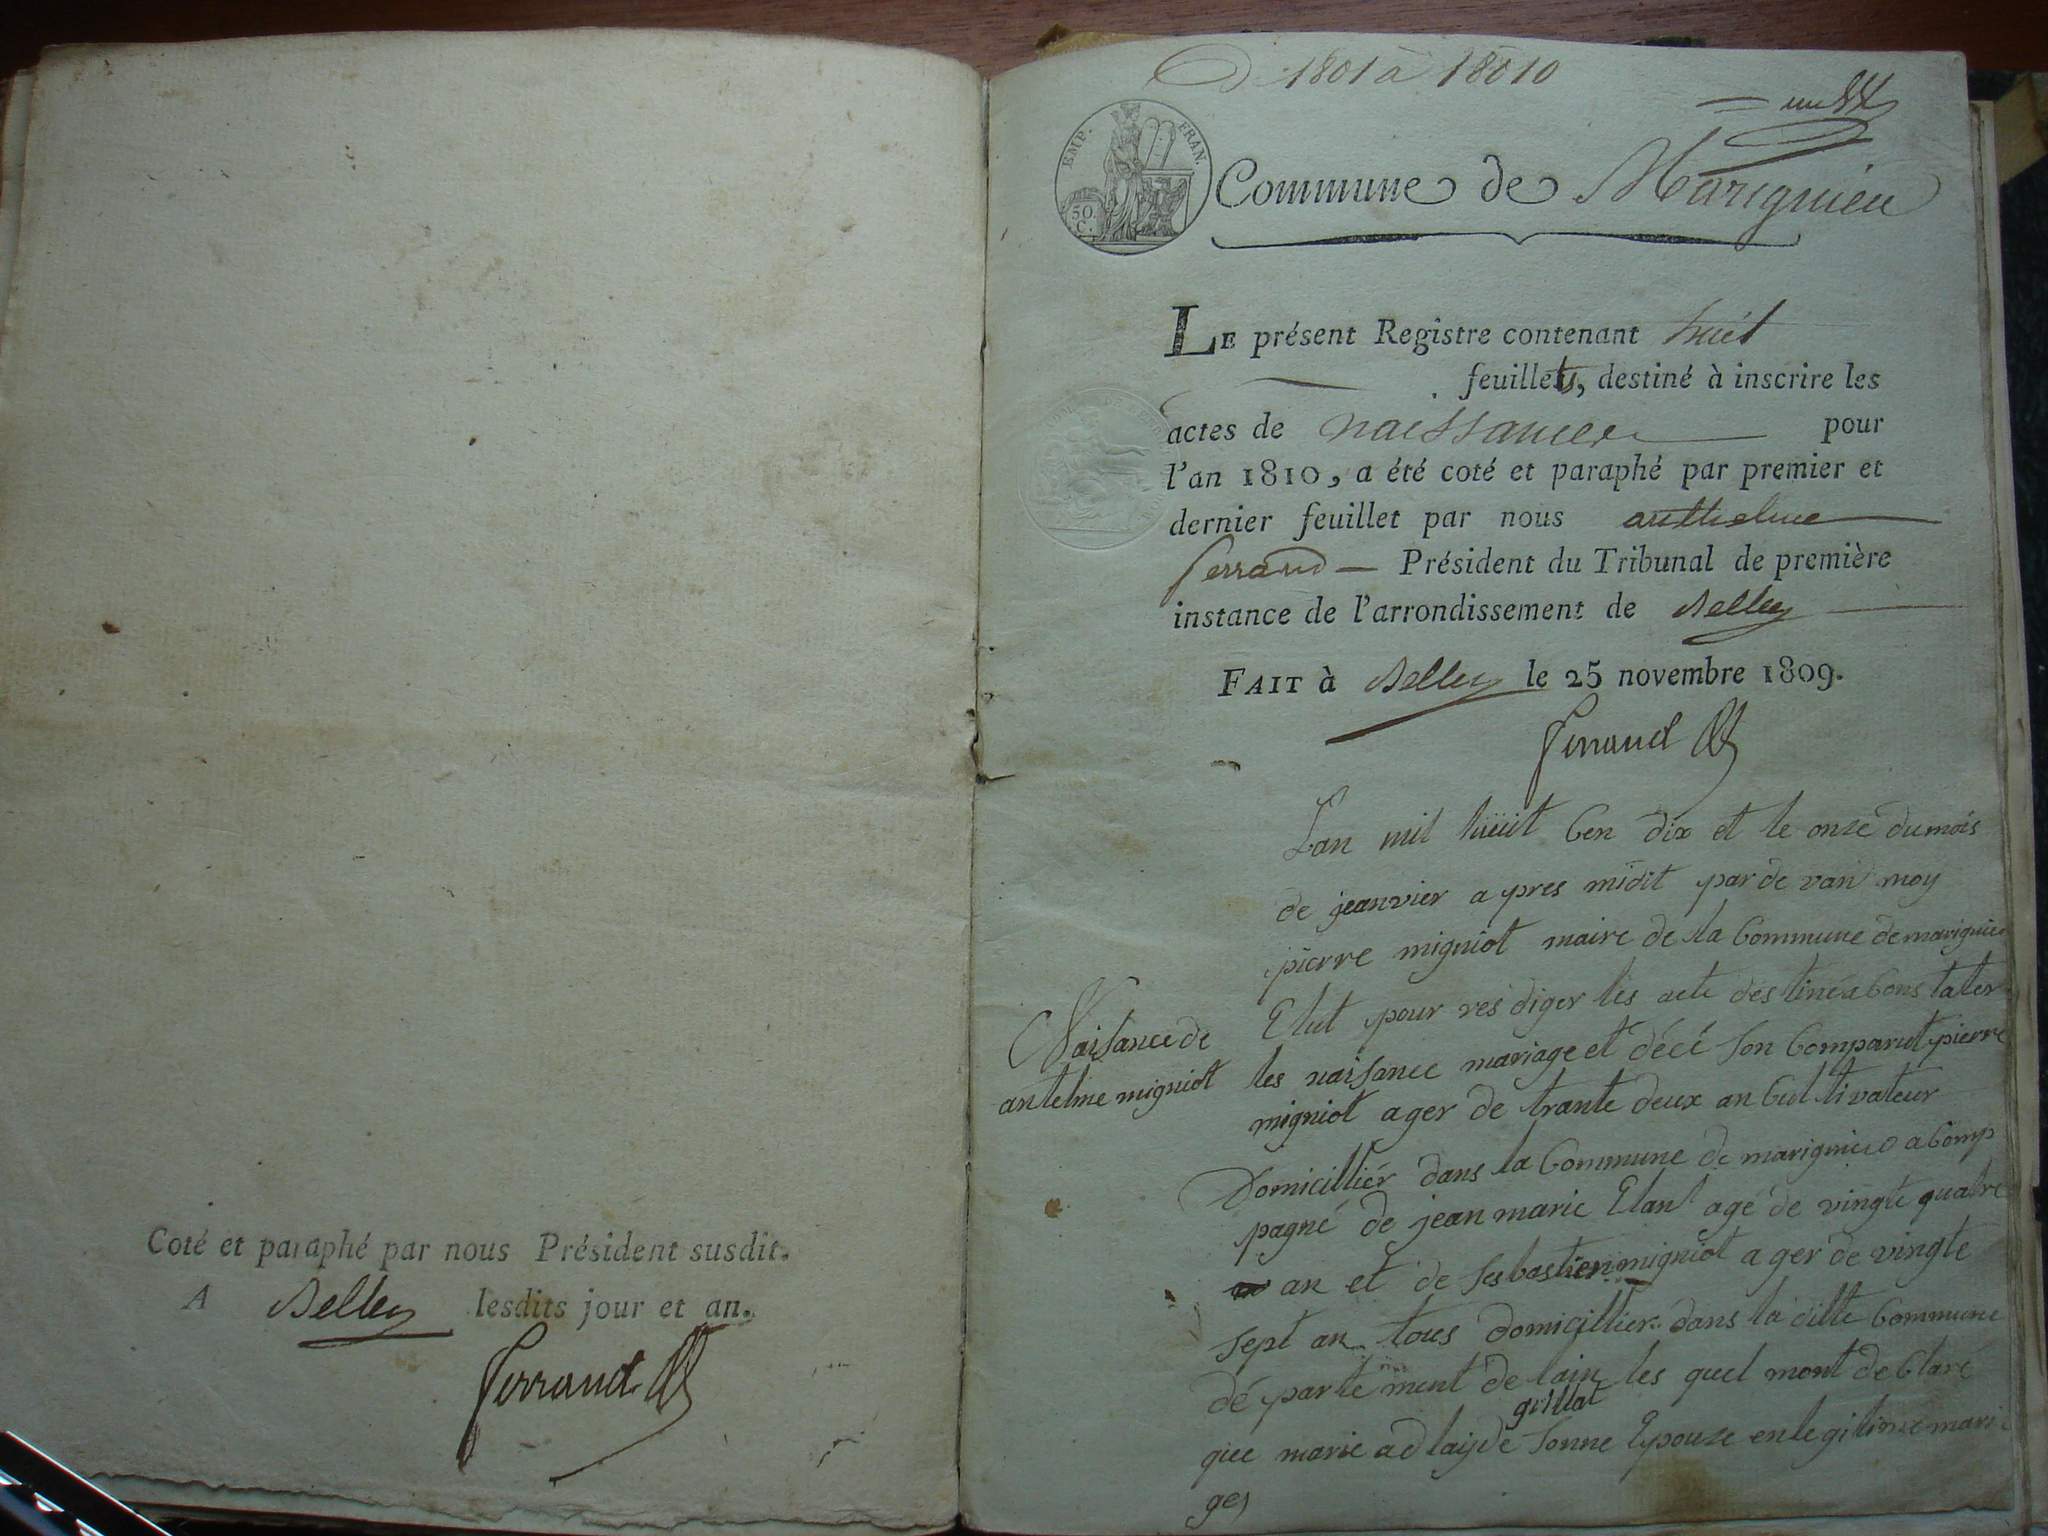 Coté et paraphé par nous Président susdit.
A Belley lesdits jour et an.
Ferrand
De 1801 à 18010
un
EMP. FRAN.
50.
C.
Commune de Marignieu
LE présent Registre contenant huit
feuillets, destiné à inscrire les
actes de naissance pour
l'an 1810, a été coté et paraphé par premier et
dernier feuillet par nous anthelme
ferrand Président du Tribunal de première
instance de l'arrondissement de Belley
FAIT à Belley le 25 novembre 1809.
ferrand
Lan mil huit Cen dix et le onze du mois
de jeanvier a pres midit par de van moy
pierre migniot maire de la Commune de marignieu
Elut pour res diger les acte destiné a Cons tater
Naisance de
antelme migniot
les naisance mariage et décé son Comparut pierre
migniot ager de trante deux an Cul tivateur
Domicilliér dans la Commune de marignieu a Comp
pagné de jean marie agé de vingte quatre
an et de sesbastien migniot a ger de vingte
sept an tous domicillier dans la ditte Commune
dé parte ment de lain les quel mont de Claré
grillat
que marie ad layde sonne Epouze en legitime mari
ges